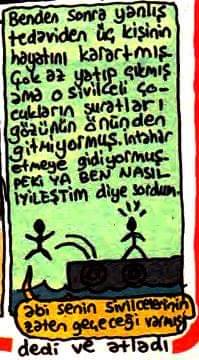 Benden sonra yanlış
tedaviden üç kişinin
hayatını karartmış.
Çok az yatıp çıkmış
ama o sivilceli ço-
cukların suratları
gözünün önünden
gitmiyormuş. İntahar
etmeye gidiyormuş.
PEKİ YA BEN NASIL
İYİLEŞTİM diye sordum.
abi senin sivilcelerinin
zaten geçeceği varmış
dedi ve atladı